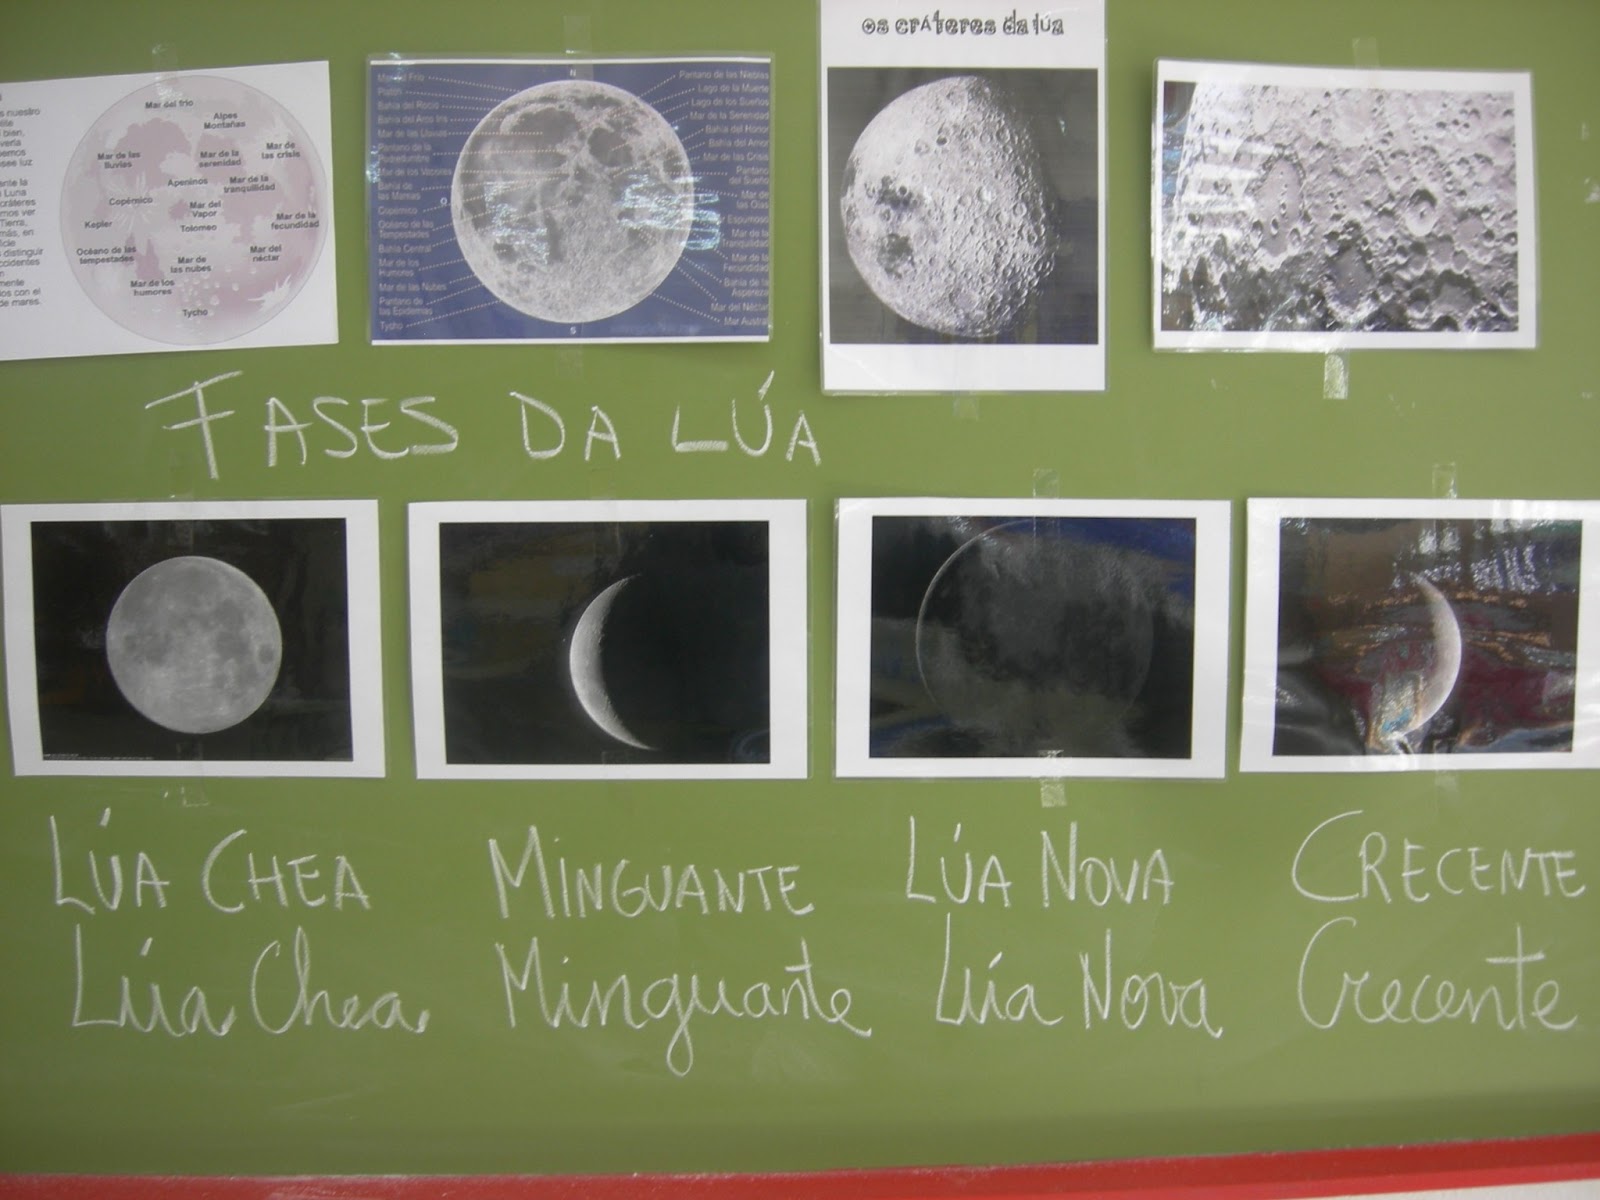 nuestro
bien,
vería
ente la
Luna
cráteres
mos ver
Tierra,
más, en
distinguir
ccidentes
mente
ios con el
de mares.
Mar del frío
Alpes
Montañas
Mar de las
lluvias
Mar de la
serenidad
Mar de
las crisis
Apeninos
Mar de la
tranquilidad
Copérnico
Mar del
Vapor
Mar de la
fecundidad
Kepler
Tolomeo
Océano de las
tempestades
Mar de
las nubes
Mar del
néctar
Mar de los
humores
Tycho
N
Mar de Frío
Platón
Bahía del Rocío
Bahía del Arco Iris
Mar de las Lluvias
Pantano de la
Podredumbre
Mar de los Vapores
Bahía de
las Mareas
Copérnico
Océano de las
Tempestades
Bahía Central
Mar de los
Humores
Mar de las Nubes
Pantano de
las Epidemias
Tycho
O
S
Pantano de las Nieblas
Lago de la Muerte
Lago de los Sueños
Mar de la Serenidad
Bahía del Honor
Bahía del Amor
Mar de las Crisis
Pantano
del Sueño
Mar de
las Olas
Espumoso
Mar de la
Tranquilidad
Mar de la
Fecundidad
Bahía de la
Aspereza
Mar del Néctar
Mar Austral
os cráteres da lúa
FASES DA LÚA
LÚA CHEA
MINGUANTE
LÚA NOVA
CRECENTE
Lúa Chea
Minguante
Lúa Nova
Crecente